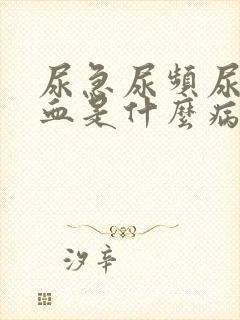 尿急尿频尿
血是什麼病
汐辛